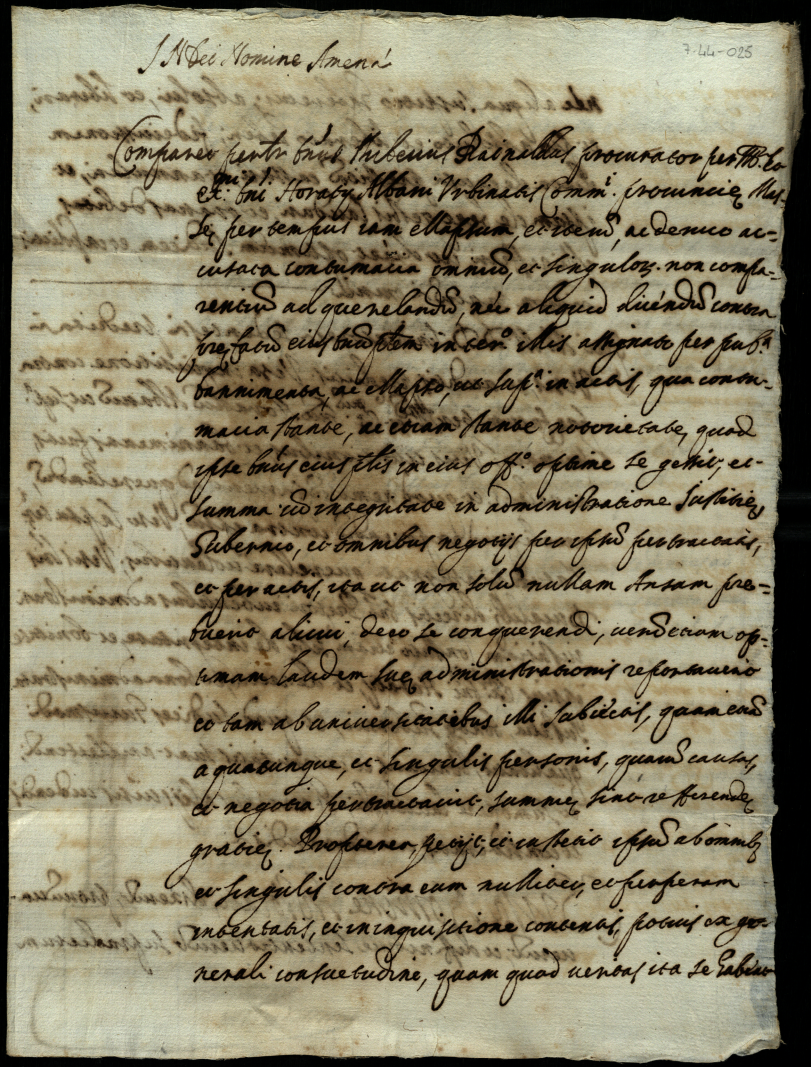 7-44-025
In Dei Nomine Amen
Comparet personaliter Tiberius Rainaldus procurator per Ill.
Horatij Albani Vrbinatis Comm. provinciȩ Mas-
sȩ per tempus iam elapsum, et iterũ, ac denuo ac-
cusata contumacia omniũ, et singulor. non compa-
rentiũ ad querelandũ, nec aliquid dicẽdũ contra
prefatũ eius in ter.º illis assignato per pub.ca
bannimenta, ac elapso, ut sup.ª in actis, qua contu-
macia stante, ac etiam stante notorietate, quod
ipse eius in eius off.º optime se gessit, et
summa cũ integritate in administratione Justitiȩ
Gubernio, et omnibus negotijs per ipsũ pertractatis,
et peractis, ita ut non solũ nullam Ansam pre-
buerit alicui, de eo se conquerendi, uerũ etiam op-
timam laudem suȩ administrationis reportauerit
et tam ab uniuersitatibus illi subiectis, quam etiã
a quacunque, et singulis personis, quarũ causas,
et negotia pertractauit, summȩ sint referendȩ
gratiȩ. Propterea petijt, et institit ipsũ ab omnib.
et singulis contra eum nulliter, et perperam
intentatis, et in inquisitione contentis, potius ex ge-
nerali consuetudine, quam quod ueritas ita se habeat